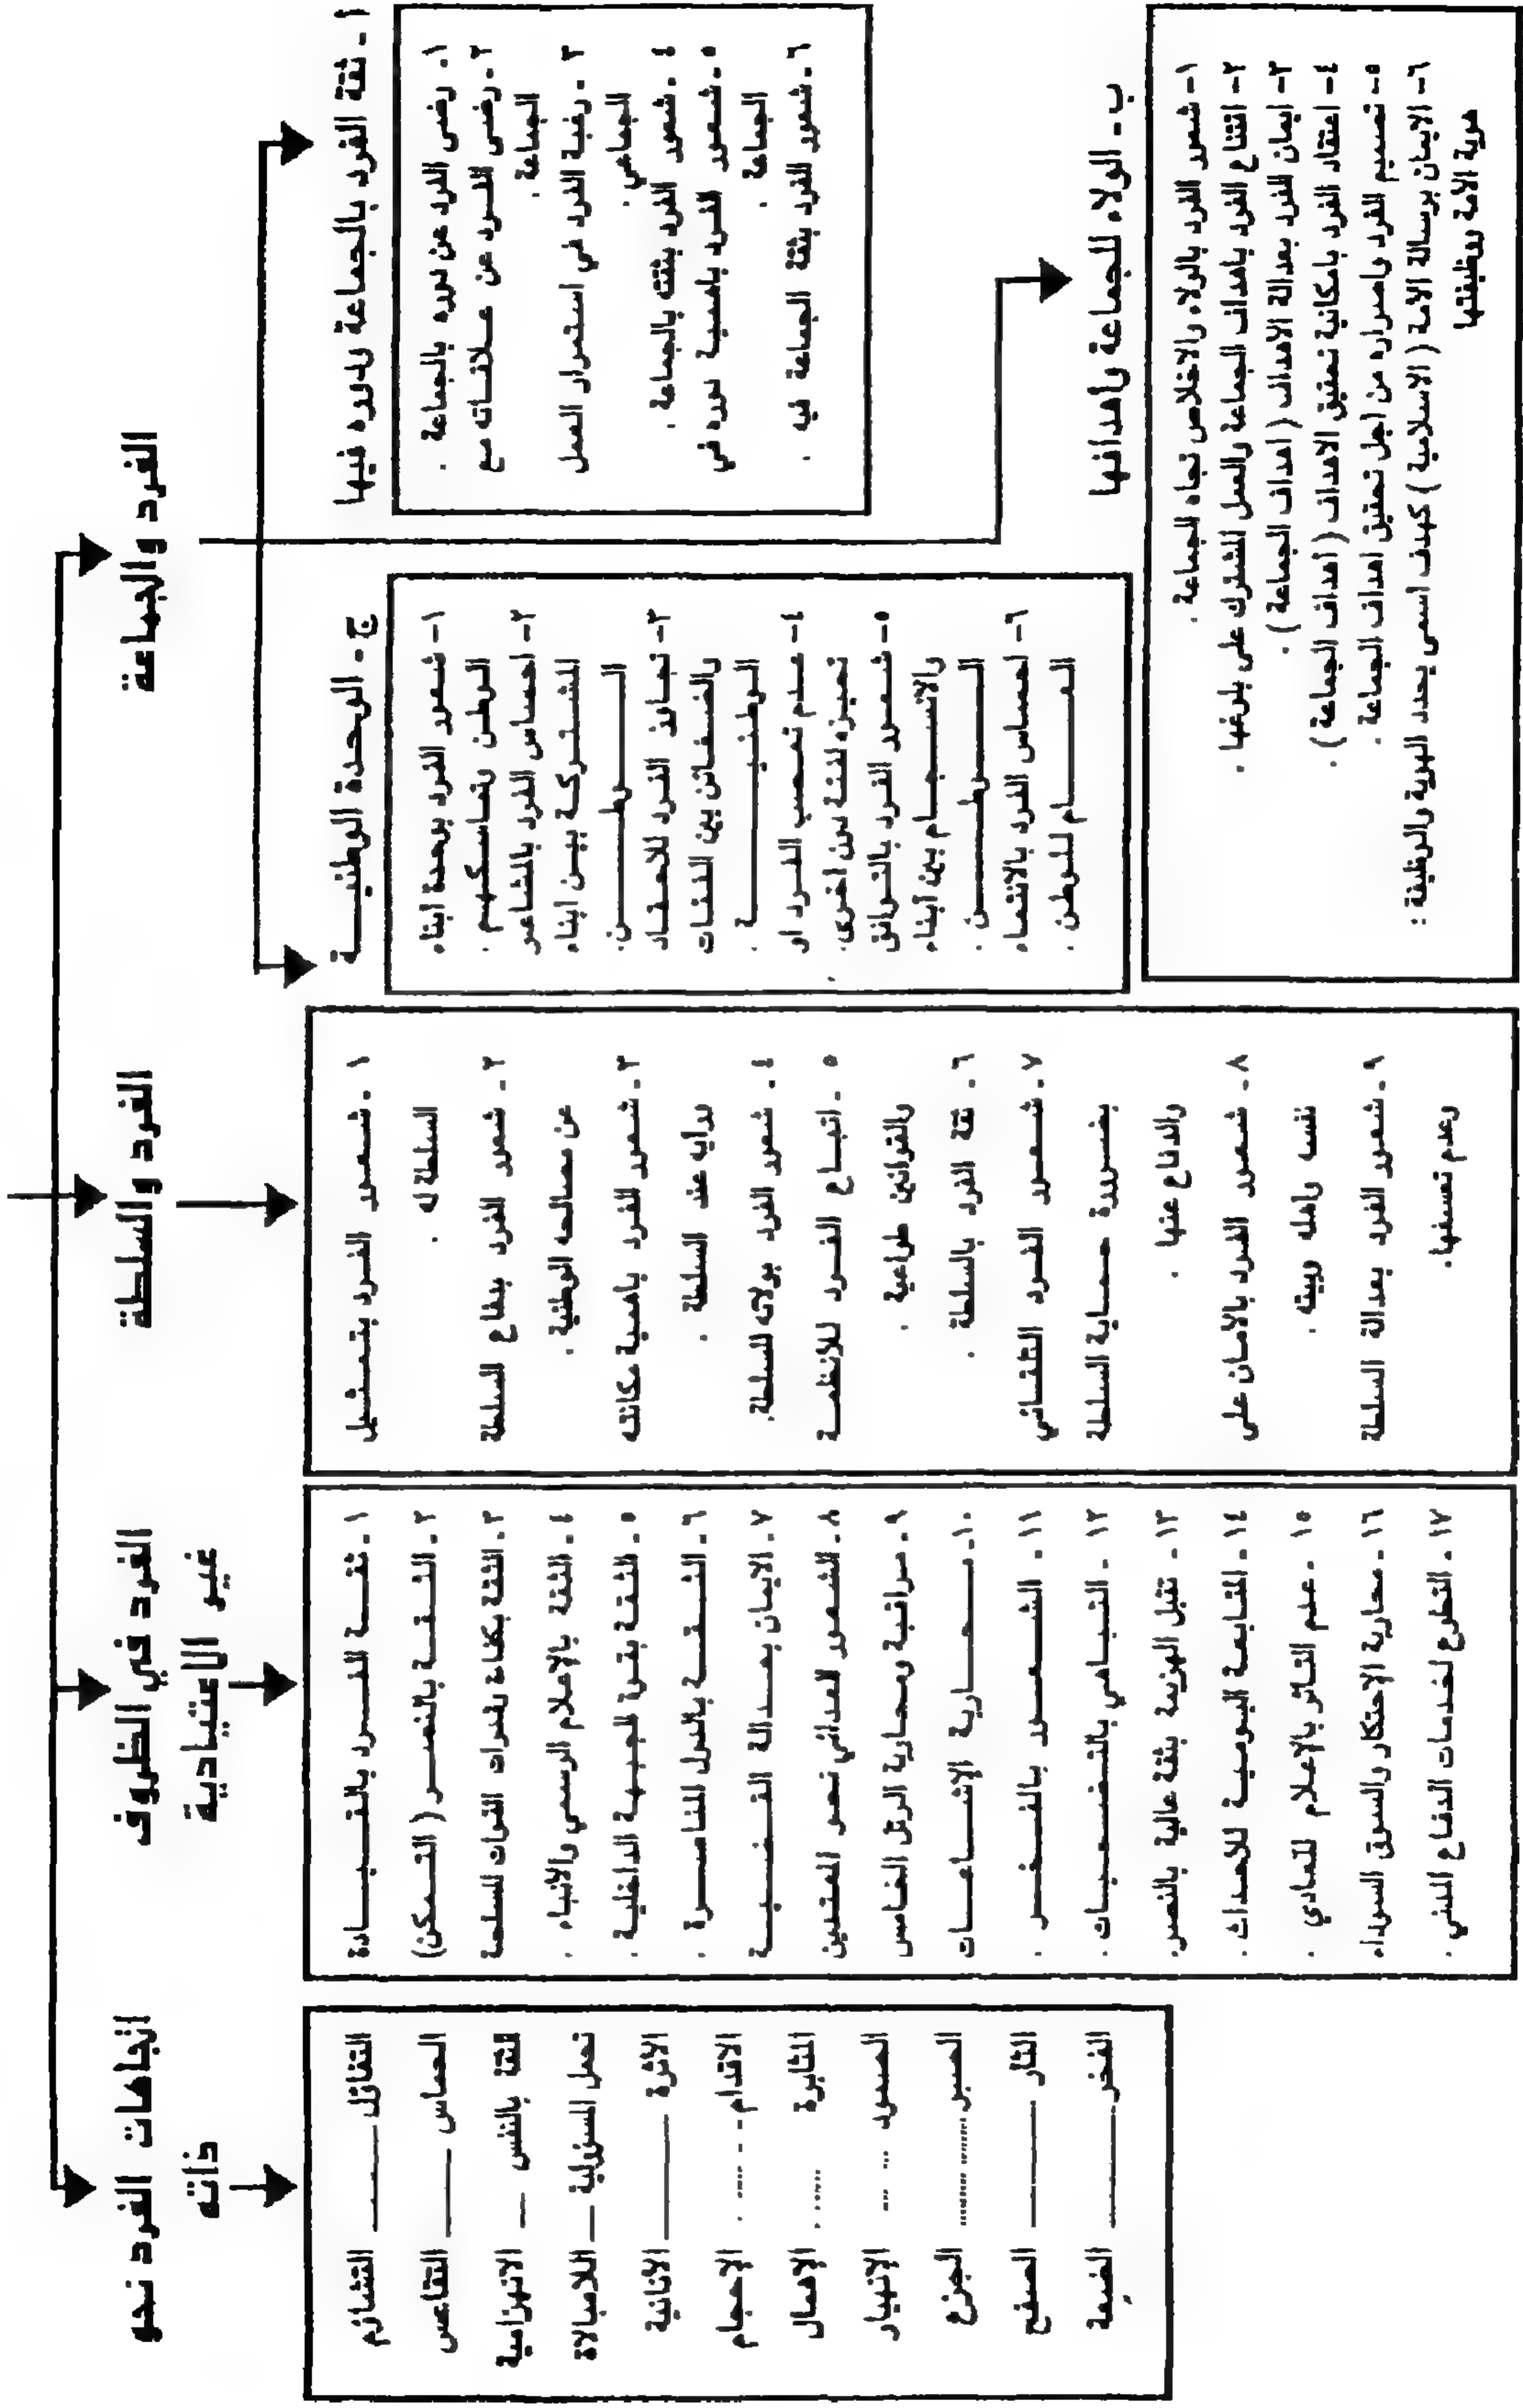 الفرد والجماعة
١ - ثقة الفرد بالجماعة ودوره فيها
١ - رضى الفرد عن دوره بالجماعة .
٢ - رضى الفرد عن علاقاته مع
الجماعة .
٣ - رغبة الفرد في استمرار العمل
الجماعي .
٤ - شعور الفرد بثقته بالجماعة .
٥ - شعور الفرد باهمية دوره في
الجماعة .
٦ - شعور الفرد بثقة الجماعة فيه .
ب - الولاء للجماعة واهدافها
١ - شعور الفرد بالولاء والاخلاص تجاه الجماعة .
٢ - اقتناع الفرد باهداف الجماعة والعمل المشترك على بلوغها .
٣ - ايمان الفرد بعدالة الاهداف ( اهداف الجماعة ) .
٤ - اعتقاد الفرد بامكانية تحقيق الاهداف ( اهداف الجماعة ) .
٥ - تصميم الفرد واصراره من اجل تحقيق اهداف الجماعة .
٦ - الايمان برسالة الامة ( الاسلامية ) كهدف اسمى يحدد الهوية والوظيفة :
هوية الامة ووظيفتها
ج - الوحدة الوطنيـــة
١ - شعور الفرد بوحدة ابناء
الوطن وتماسكهم .
٢ - احساس الفرد بالمشاعر
المشتركة بين ابناء
الوطن .
٣ - تجاوز الفرد للاحقاد
والضغائن بين الفئات
الوطنية .
٤ - عدم تعصب الفرد او
تحيزه لفئة دون اخرى .
٥ - شعور الفرد بالتوافق
والانسجام بين أبناء
الوطن .
٦ - احساس الفرد بالانتماء
العام للوطن .
الفرد والسلطة
١ - شعور الفرد بتمثيل
السلطة له .
٢ - شعور الفرد بدفاع السلطة
عن مصالحه الوطنية .
٣ - شعور الفرد باهمية مكانته
ورأيه عند السلطة .
٤ - شعور الفرد بولائه للسلطة .
٥ - اتباع الفرد للأنظمة
والقوانين طواعية .
٦ - ثقة الفرد بالسلطة .
٧ - شعور الفرد التلقائي
بضرورة حماية السلطة
والدفاع عنها .
٨ - شعور الفرد بالأمان على
نفسه واهله وبيته .
٩ - شعور الفرد بعدالة السلطة
وعدم تعسفها .
الفرد في الظروف
غير الاعتيادية
١ - ثقة الفرد بالقيادة
٢ - الثقة بالنصر ( التمكن )
٣ - الثقة بكفاح وقدرات القوات المسلحة
٤ - الثقة بالإعلام الرسمي والأنباء .
٥ - الثقة بقوة الجبهة الداخلية .
٦ - الثقة بالدول المناصرة .
٧ - الايمان بعدالة القضية
٨ - الشعور العدائي نحو المعتدين
٩ - مراقبة ومحاربة الرتل الخامس
١٠ - محاربة الإشاعات
١١ - الشعور بالفخر .
١٢ - التباهي بالتضحيات .
١٣ - تقبل الهزيمة بثقة عالية بالنصر .
١٤ - المتابعة اليومية للاحداث .
١٥ - عدم التأثر بالإعلام المعادي .
١٦ - محاربة الإحتكار والسوق السوداء
١٧ - التطوع لخدمات الدفاع المدني .
اتجاهات الفرد نحو
ذاته
التفاؤل ——— التشاؤم
الحماس ——— التقاعس
الثقة بالنفس — الانهزامية
تحمل المسؤولية — اللامبالاة
الأثرة ——— الأنانية
الاقدام - - ..... . الإحجام
المثابرة ...... . الإهمال
الصمود ... ... الإنهيار
الصبر ............ الجزع
الثأر ——— الصفح
الفخر ——— الضِعة